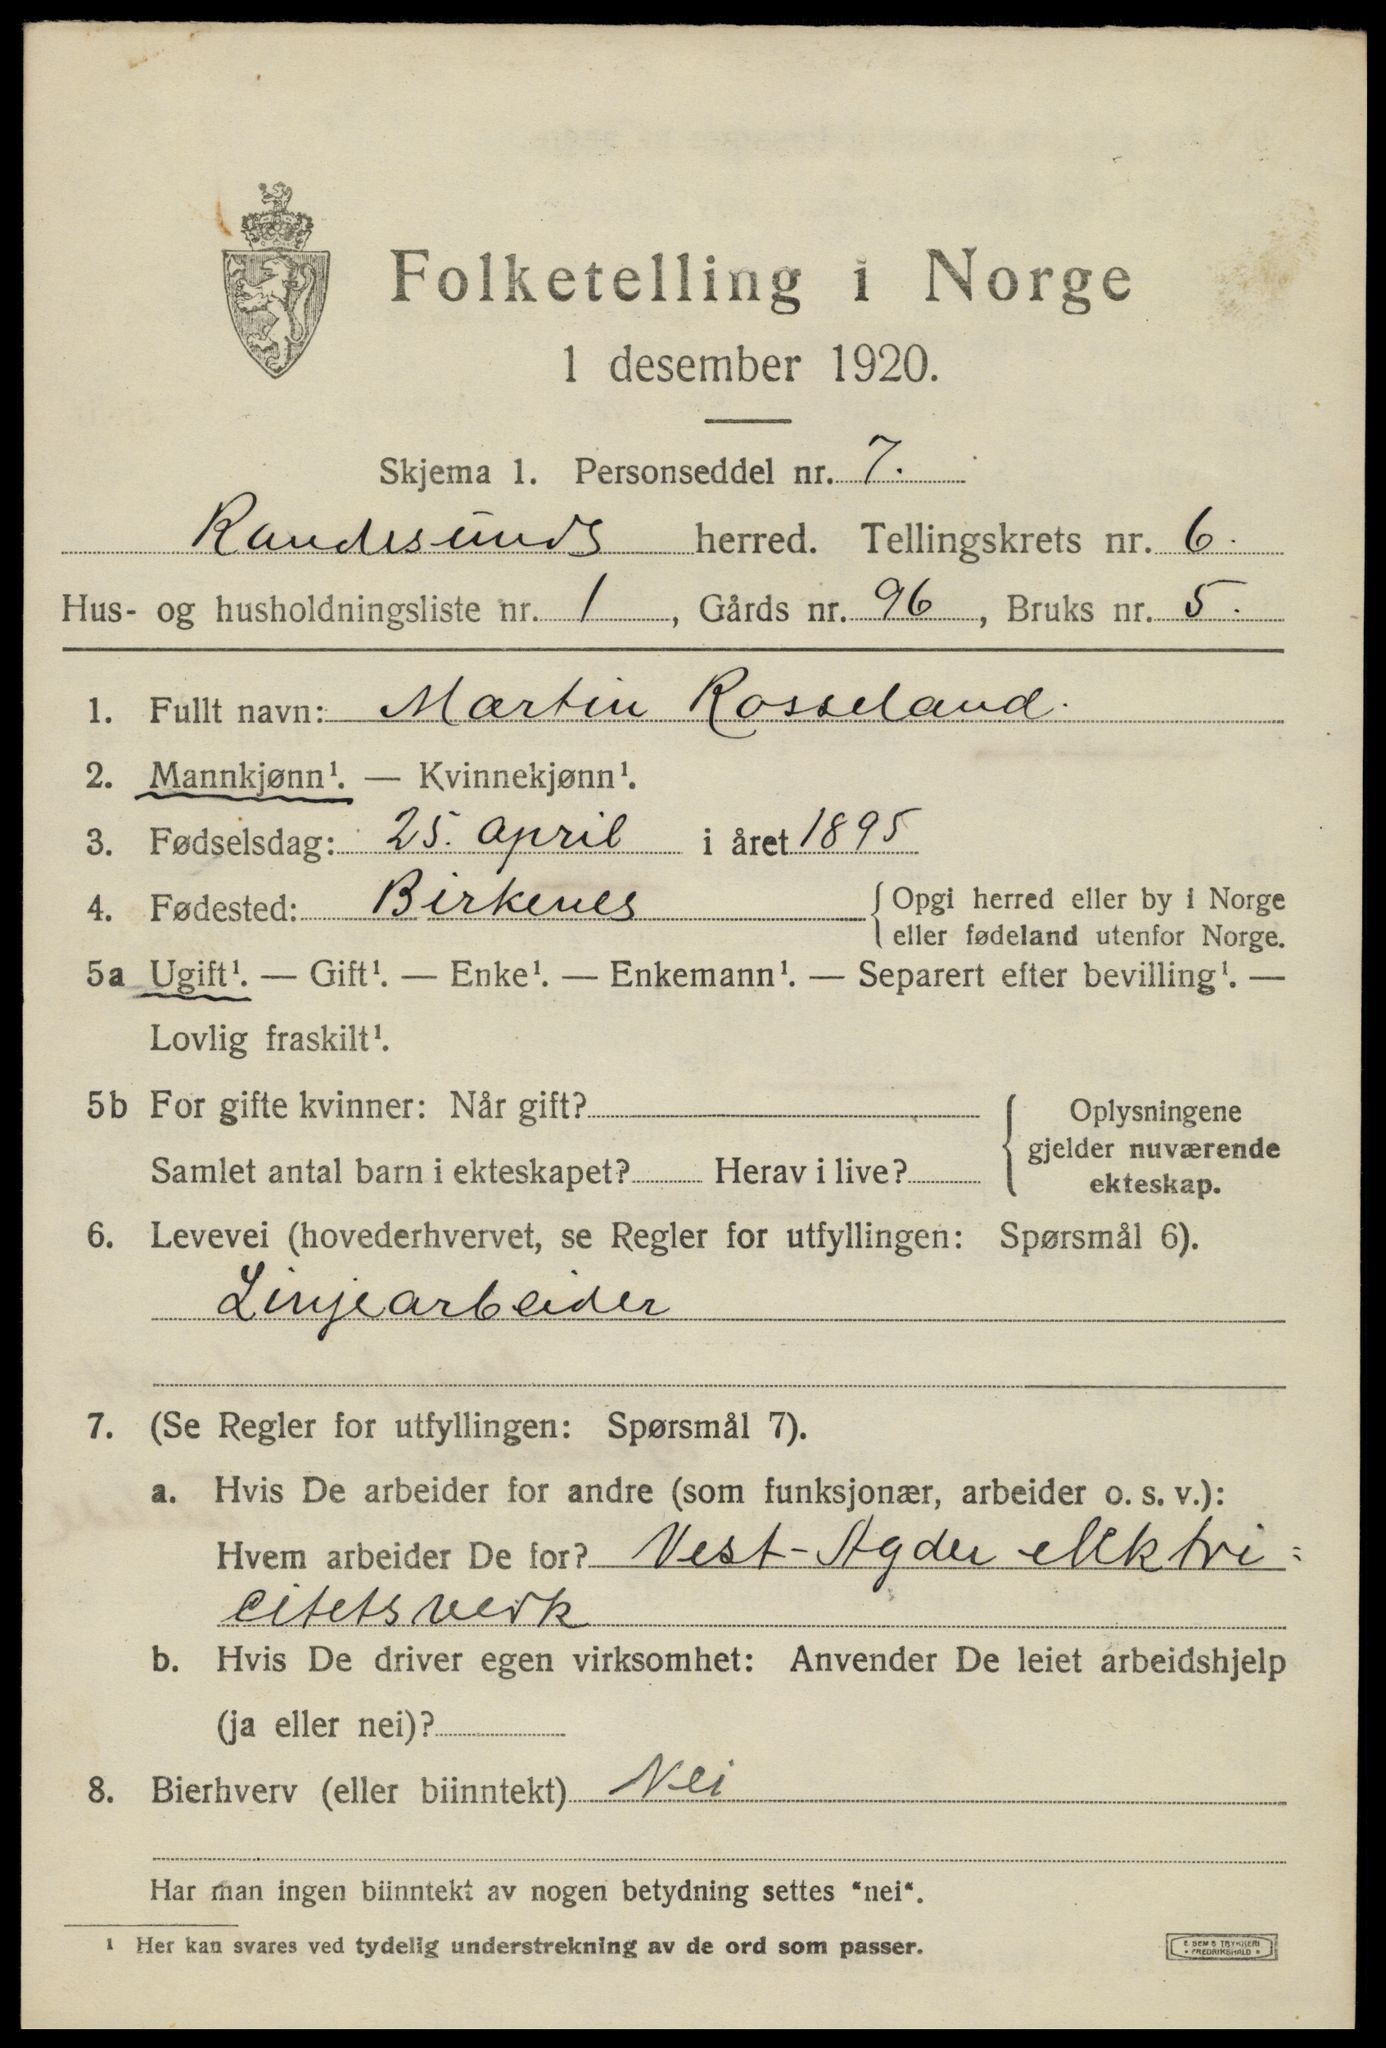 Folketelling i Norge
1 desember 1920.
Skjema 1. Personseddel nr. 7.
Randesunds herred. Tellingskrets nr. 6.
Hus- og husholdningsliste nr. 1, Gårds nr. 96, Bruks nr. 5.
1. Fullt navn: Martin Rosseland.
2. Mannkjønn¹. — Kvinnekjønn¹.
3. Fødselsdag: 25. april i året 1895
4. Fødested: Birkenes {Opgi herred eller by i Norge
eller fødeland utenfor Norge.
5a Ugift¹. — Gift¹. — Enke¹. — Enkemann¹. — Separert efter bevilling¹. —
Lovlig fraskilt¹.
5b For gifte kvinner: Når gift? Oplysningene
gjelder nuværende
Samlet antal barn i ekteskapet? Herav i live? ekteskap.
6. Levevei (hovederhvervet, se Regler for utfyllingen: Spørsmål 6).
Linjearbeider
7. (Se Regler for utfyllingen: Spørsmål 7).
a. Hvis De arbeider for andre (som funksjonær, arbeider o. s. v.):
Hvem arbeider De for? Vest-Agder elektri=
citetsverk
b. Hvis De driver egen virksomhet: Anvender De leiet arbeidshjelp
(ja eller nei)?
8. Bierhverv (eller biinntekt) Nei
Har man ingen biinntekt av nogen betydning settes "nei".
¹ Her kan svares ved tydelig understrekning av de ord som passer.
E. SEM'S TRYKKERI
• FREDRIKSHALD •